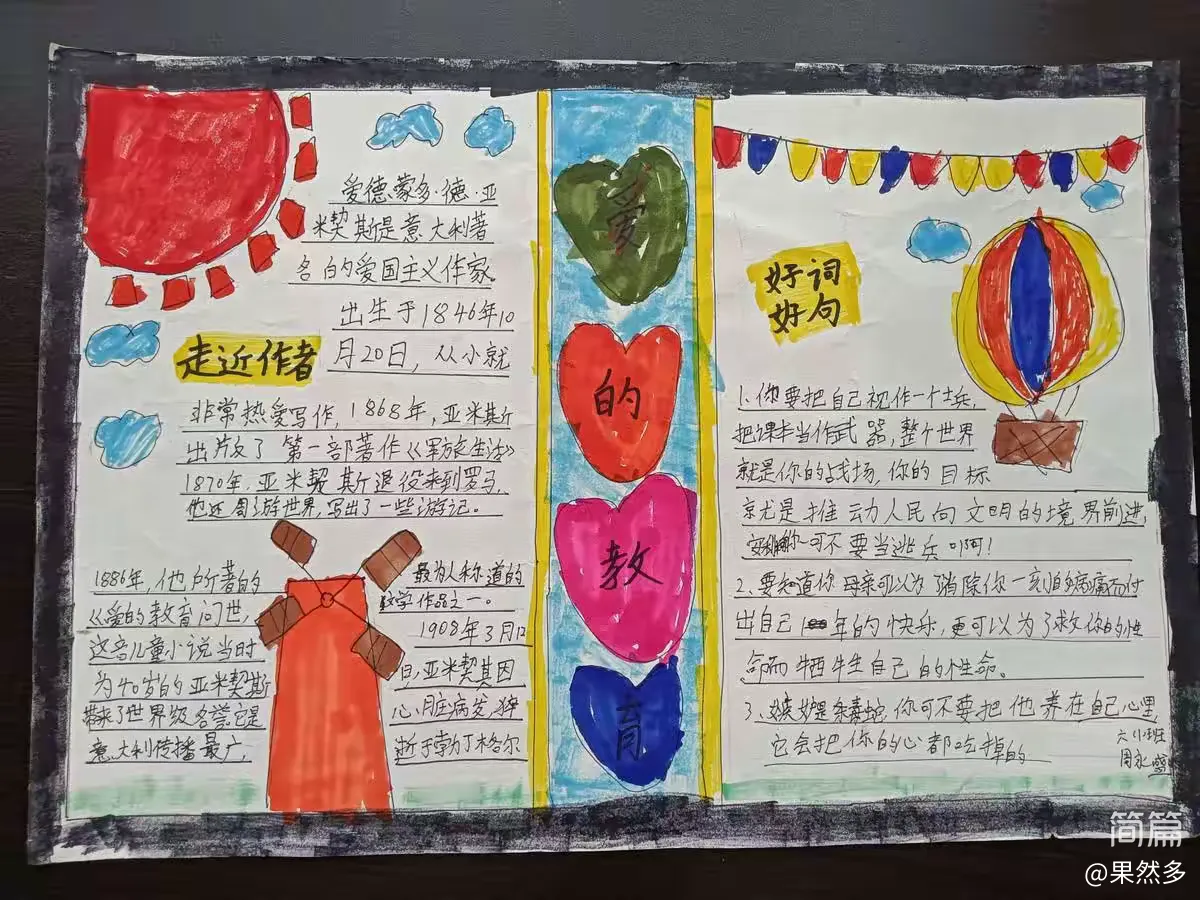 爱德·蒙多·德·亚
米契斯是意大利著
名的爱国主义作家
出生于1846年10
月20日，从小就
走近作者
非常热爱写作，1868年，亚米契斯
出版了第一部著作《军旅生活》
1870年，亚米契斯退役来到罗马，
他还周游世界，写出了一些游记。
1886年，他所著的
《爱的教育问世，
这部儿童小说当时
为40岁的亚米契斯
带来了世界级名誉它是
意大利传播最广，
最为人称道的
文学作品之一。
1908年3月12
日，亚米契其因
心脏病发，猝
逝于勃丁格尔
爱
的
教
育
好词
好句
1、你要把自己视作一个士兵，
把课本当作武器，整个世界
就是你的战场，你的目标
就是推动人民向文明的境界前进，
可不要当逃兵啊！
2、要知道你母亲可以为了消除你一刻的病痛而付
出自己1年的快乐，更可以为了救你的性
命而牺牲自己的性命。
3、嫉妒是条毒蛇，你可不要把他养在自己心里，
它会把你的心都吃掉的
班
周永
简篇
@果然多